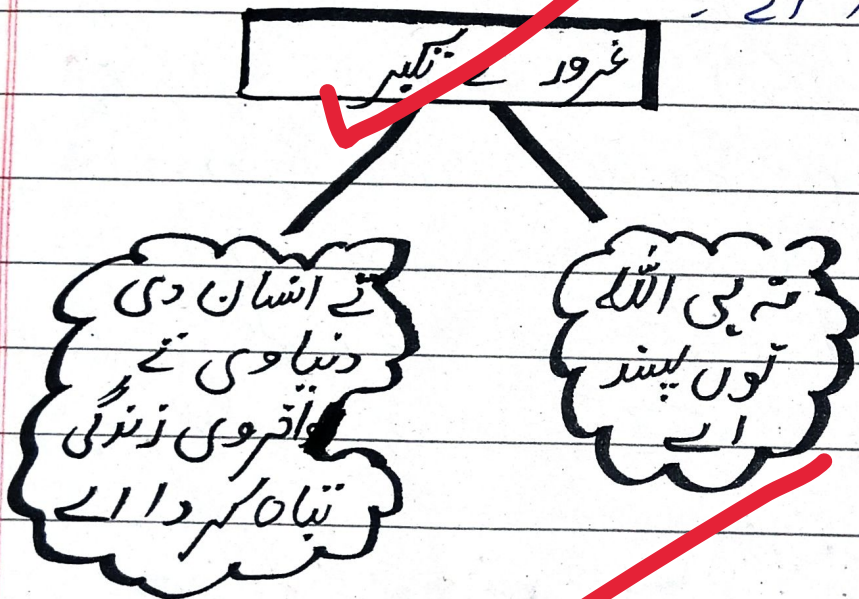 اے -
غرور تے تکبر
نہ ہی اللہ
نوں پسند
اے
تے انسان دی
دنیاوی تے
اخروی زندگی
تباہ کر دا اے